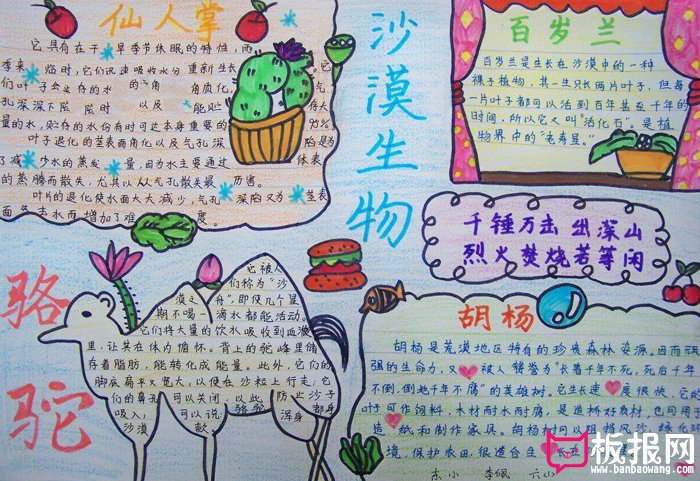 仙人掌
它具有在干旱季节休眠的特性,雨
季来临时,它们迅速吸收水分重新生长
叶子退化的茎表面角化以及气孔深陷
水的蒸发量,因为水主要通过体表
的蒸腾而散失,尤其以从气孔散失最厉害。
叶片的退化使水面大大减少,气孔深陷又为茎表
面失去水而增加了难度。
沙漠生物
百岁兰
百岁兰是生长在沙漠中的一种
裸子植物,其一生只长两片叶子,但每
一片叶子都可以活到百年甚至千年的
时间,所以它又叫“活化石”。是植
物界中的“老寿星。”
千锤万击出深山
烈火焚烧若等闲
骆驼
它被人
们称为“沙
漠之舟”,即使几个星
期不喝一滴水都能活动。
它们将大量的饮水吸收到血液
里,让其在体内循环。背上的驼峰里储
存着脂肪,能转化成能量。此外,它们的
脚底扁平又宽大,以便在沙粒上行走;它
们的鼻孔可以关闭,以此防止沙子
吸入,可以说骆驼浑身都身
沙漠
胡杨
胡杨是荒漠地区特有的珍贵森林资源。因而顽
强的生命力,又被人赞誉为“长着千年不死,死后千年
不倒,倒地千年不腐”的英雄树。它生长速度很快,它的
叶子可作饲料,木材耐水耐腐,是造桥好良材,也可用于
造纸和制作家具。胡杨树可以阻挡风沙,绿化环
境,保护农田,很适合生长在
李佩
板报网
www.banbaowang.com